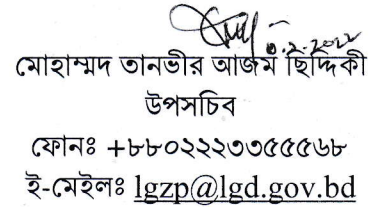 ৩.২.২০২২
মোহাম্মদ তানভীর আজম ছিদ্দিকী
উপসচিব
ফোনঃ +৮৮০২২২৩৩৫৫৫৬৮
ই-মেইলঃ lgzp@lgd.gov.bd